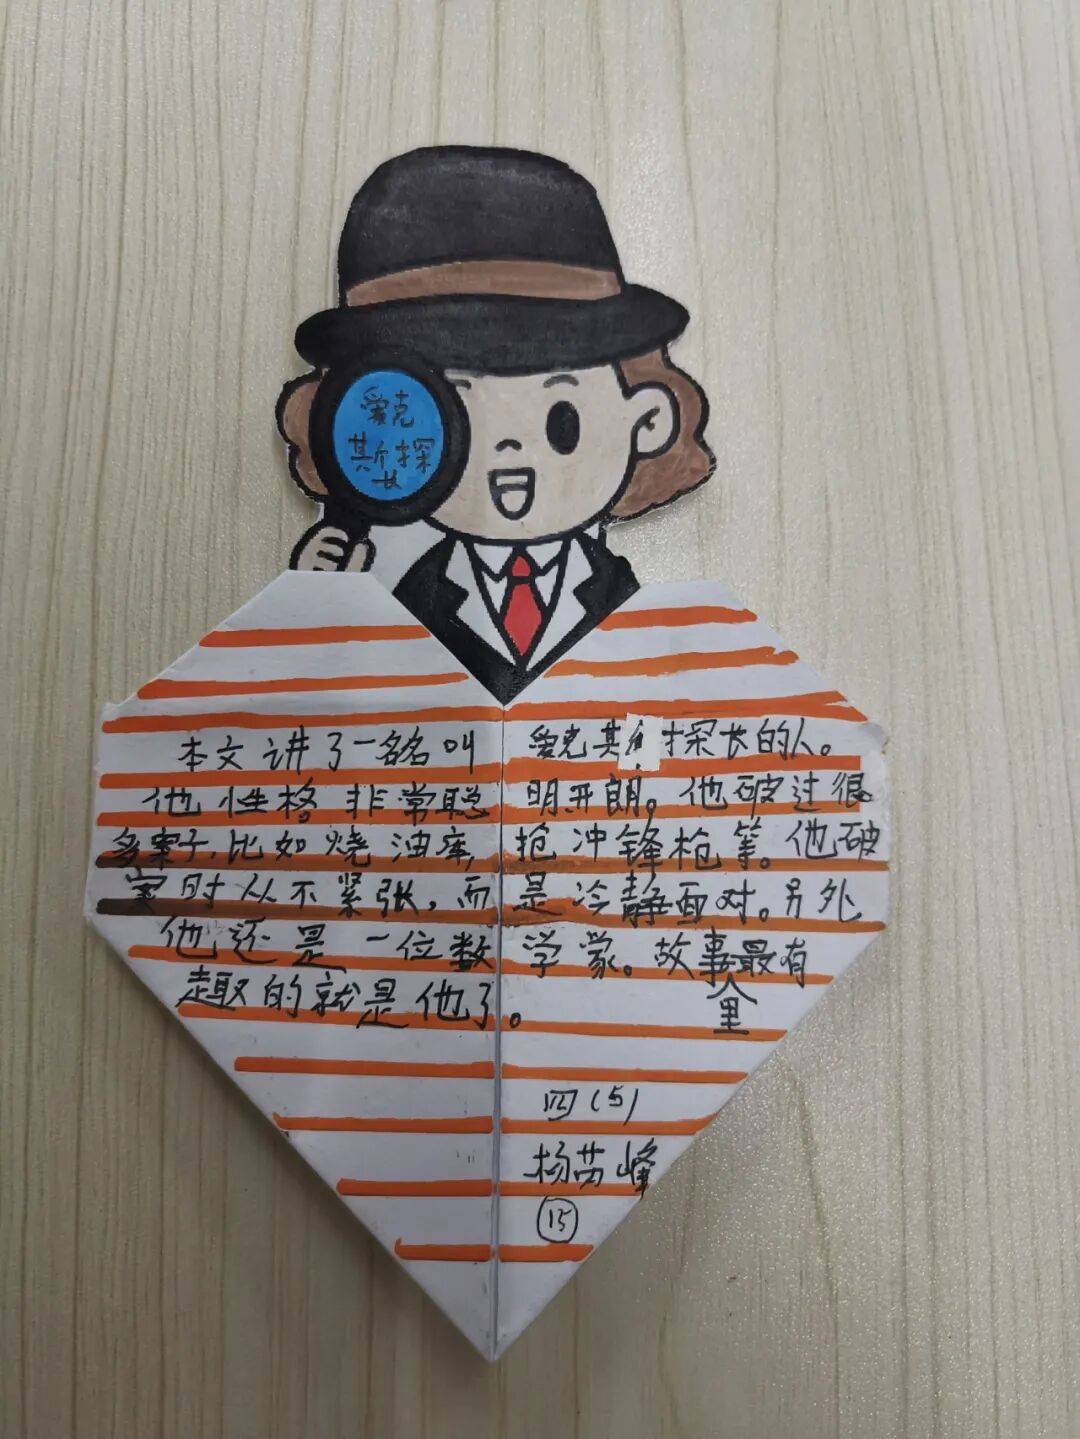 爱克
斯探
长
本文讲了一名名叫爱克斯探长的人。
他性格非常聪明开朗。他破过很
多案子,比如烧油库,抢冲锋枪等。他破
案时从不紧张,而是冷静面对。另外
他还是一位数学家。故事里最有
趣的就是他了。
四(5)
杨峰
15